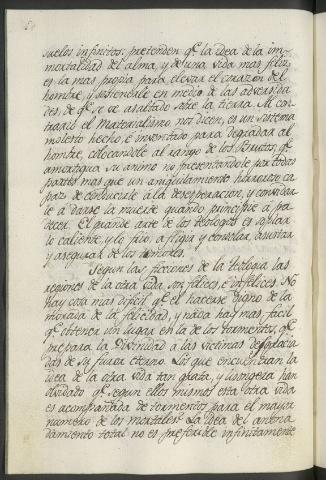 suelos infinitos: pretenden qe. la idea de la in-
mortalidad del alma, y de una vida mas feliz,
es la mas propia para elevar el corazon del
hombre, y sostenerle en medio de las adversida-
des, de qe. se ve asaltado sobre la tierra. Al con-
trario el Materialismo nos dicen, es un sistema
molesto hecho, è inventado para degradar al
hombre, colocandole al rango de los Brutos, qe.
amortigua su animo no presentandole por todas
partes mas que un aniquilamiento horroroso ca-
paz de conducirle à la desesperacion, y convidar-
le à darse la muerte quando principie à pa-
decer. El grande arte de los teologos es soplar
lo caliente, y lo frio, afligir y consolar, asustar
y asegurar de los temores.
Segun las ficciones de la teologia las
regiones de la otra vida son felices, è infelices. No
hay cosa mas dificil qe. el hacerse digno de la
morada de la felicidad, y nada hay mas facil
qe. obtener un lugar en la de los tormentos, qe.
prepara la Divinidad a las victimas desgracia-
das de su furor eterno. Los que encuentran la
idea de la otra vida tan grata, y lisongera han
olvidado qe. segun ellos mismos esta otra vida
es acompañada de tormentos para el mayor
numero de los mortales? La idea del anona-
damiento total no es preferible infinitamente